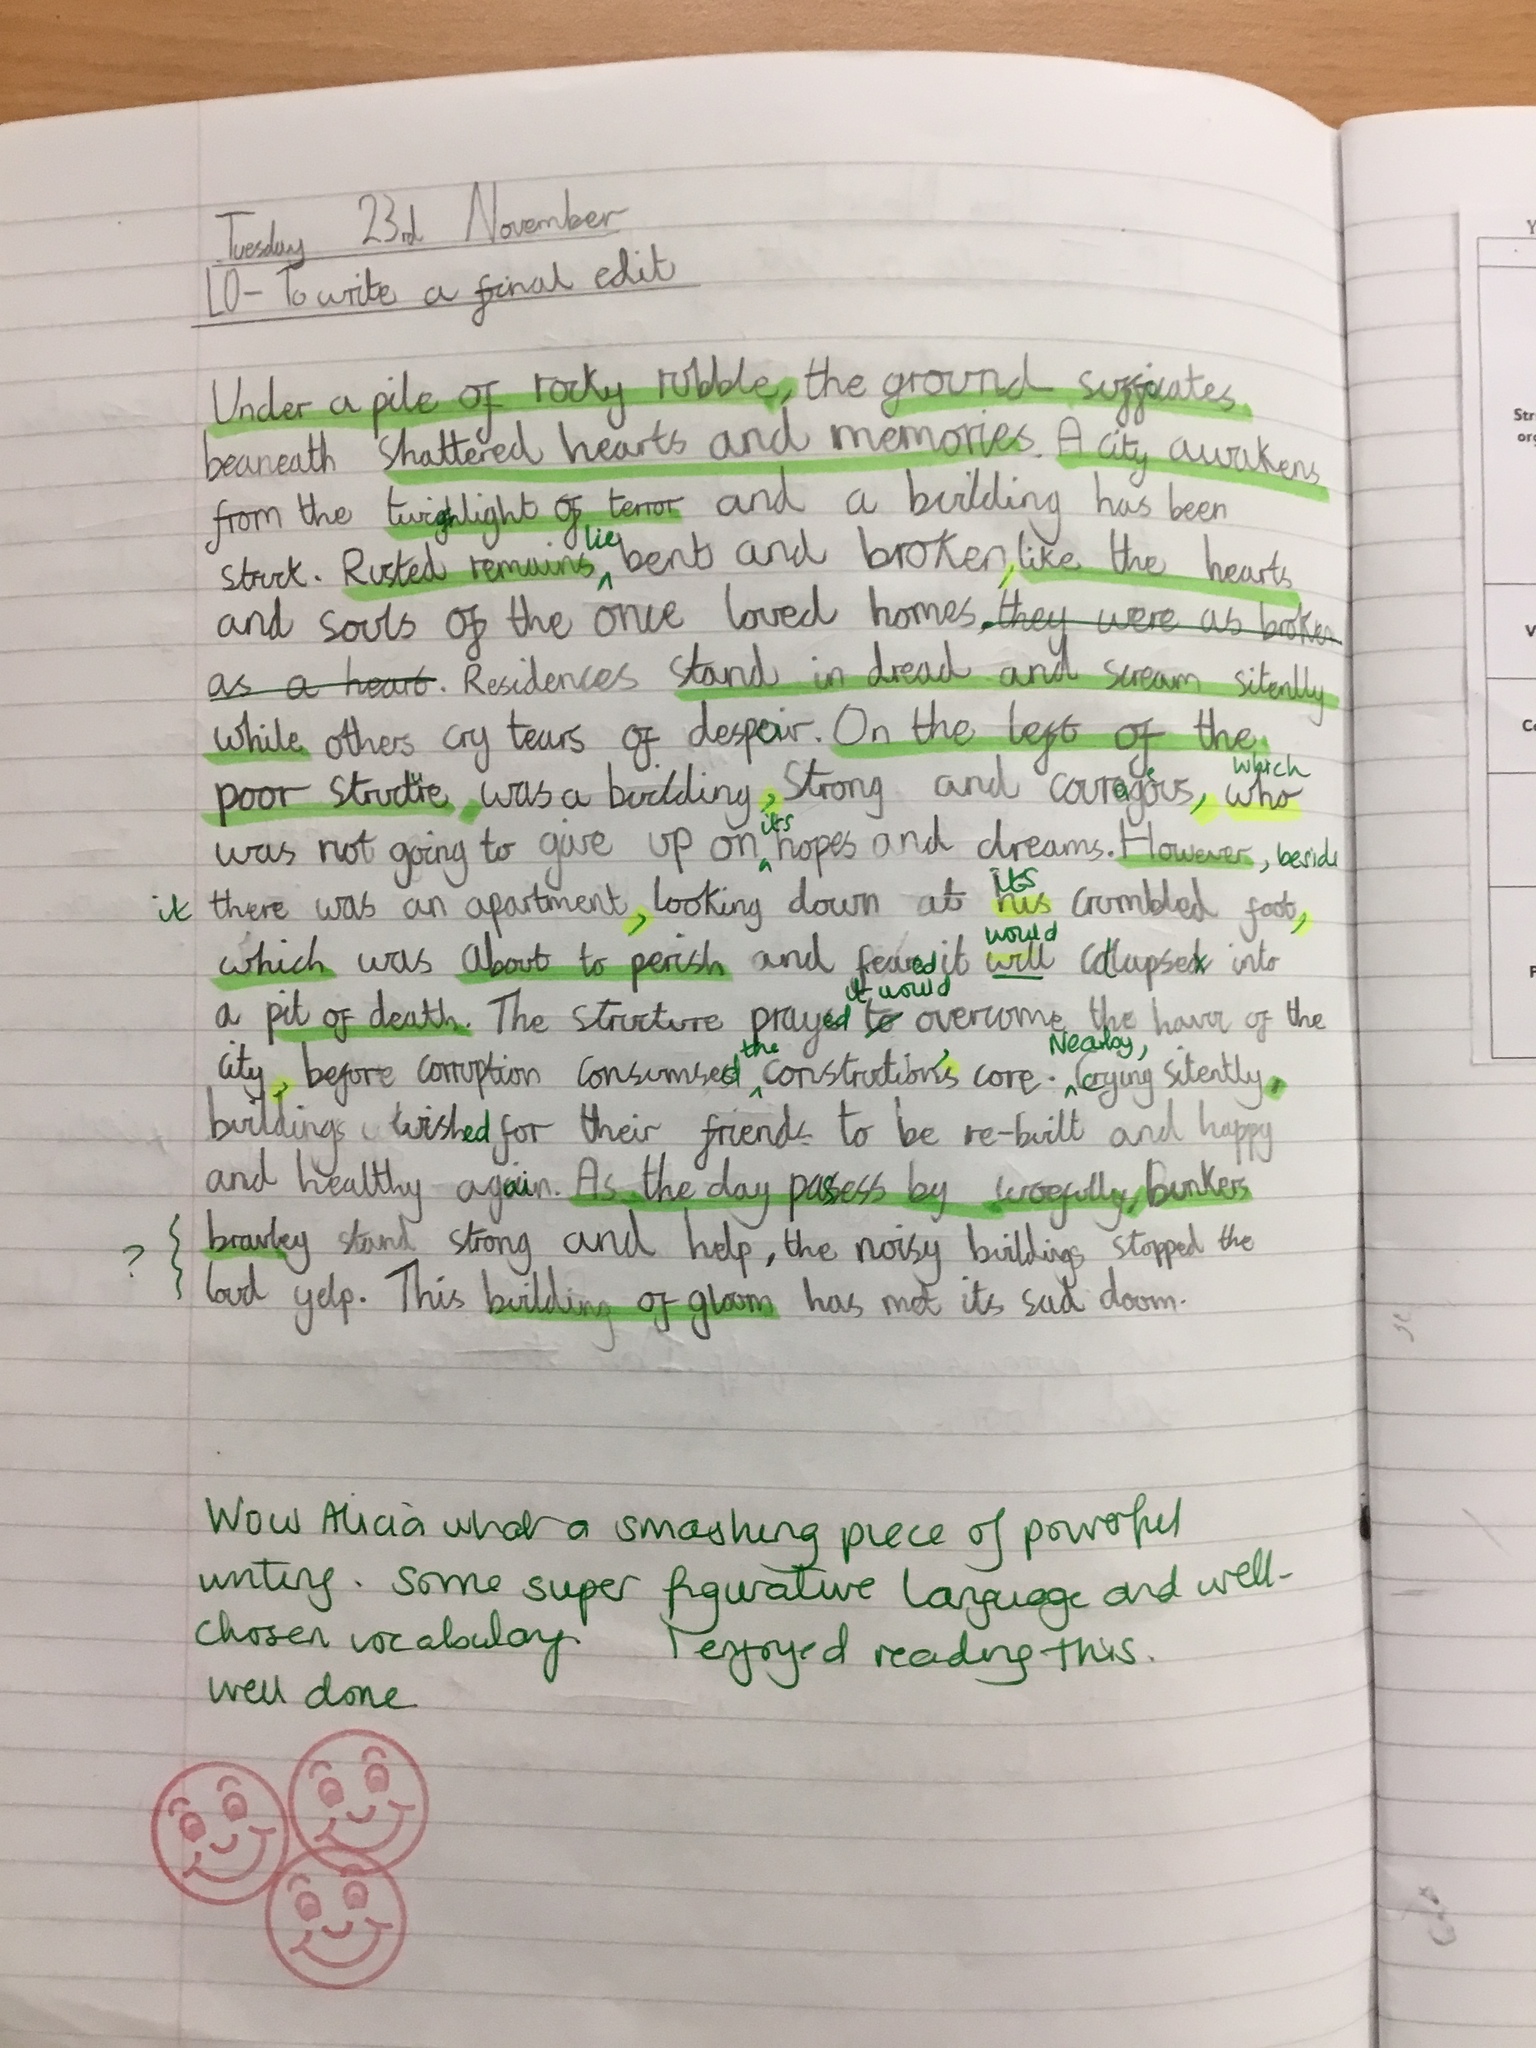 Tuesday 23rd November
LO- To write a final edit
Under a pile of rocky rubble, the ground sufficates
beaneath shattered hearts and memories. A city awakens
from the twighlight of terror and a building has been
lie
struck. Rusted remains bent and broken, like the hearts
and souls of the once loved homes, they were as broken
as a heart. Residences stand in dread and scream silently
while others cry tears of despair. On the left of the
which
poor structure, was a building, strong and courageous, who
its
was not going to give up on hopes and dreams. However, beside
its
it there was an apartment, looking down at his crumbled foot,
would
which was about to perish and feared it will collapsed into
it would
a pit of death. The structure prayed to overcome the havoc of the
the Nearby,
city, before corruption consumsed constrution's core. Crying silently,
buildings wished for their friends to be re-built and happy
and healthy again. As the day passess by woefully, bunkers
? bravley stand strong and help, the noisy buildings stopped the
loud yelp. This building of gloom has met its sad doom.
Wow Alicia what a smashing piece of powerful
writing. Some super figurative language and well-
chosen vocabulary. I enjoyed reading this.
Well done
Y
Str
org
V
Co